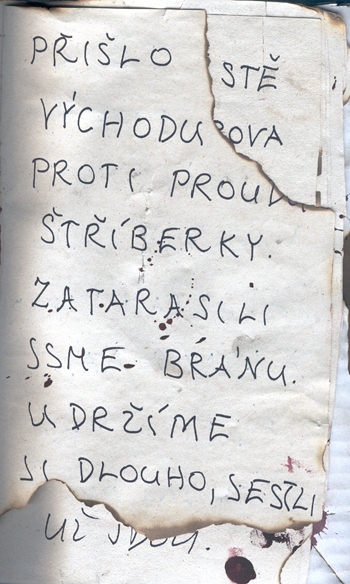 PŘIŠLO STĚ
VÝCHODU
PROTI
ŠTŘÍBERKY.
ZATARASILI
JSME BRÁNU.
UDRŽÍME
JI DLOUHO, JESTLI
UŽ JDOU.